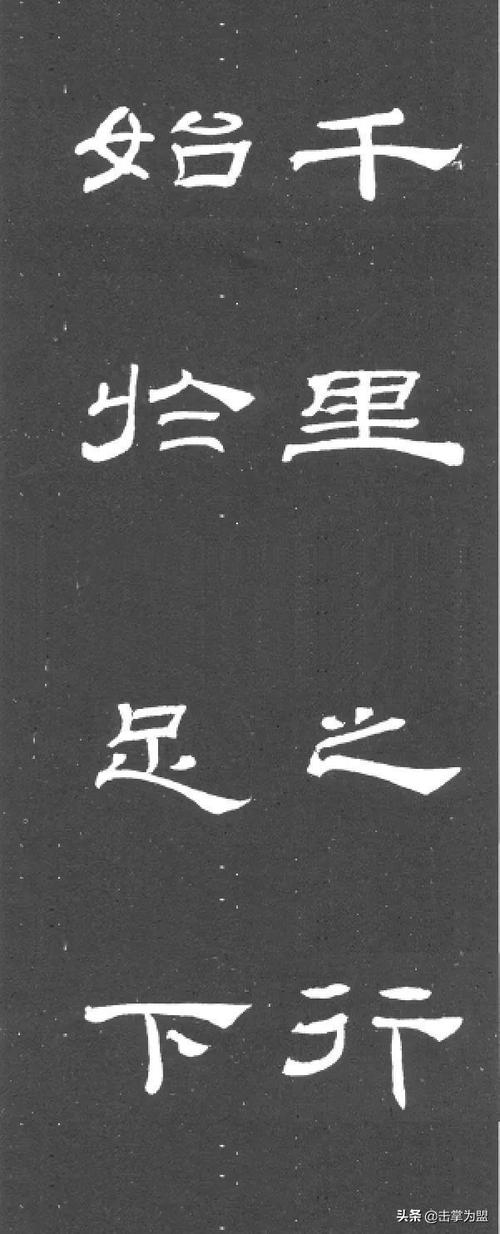 千里之行
始於足下
头条 @击掌为盟